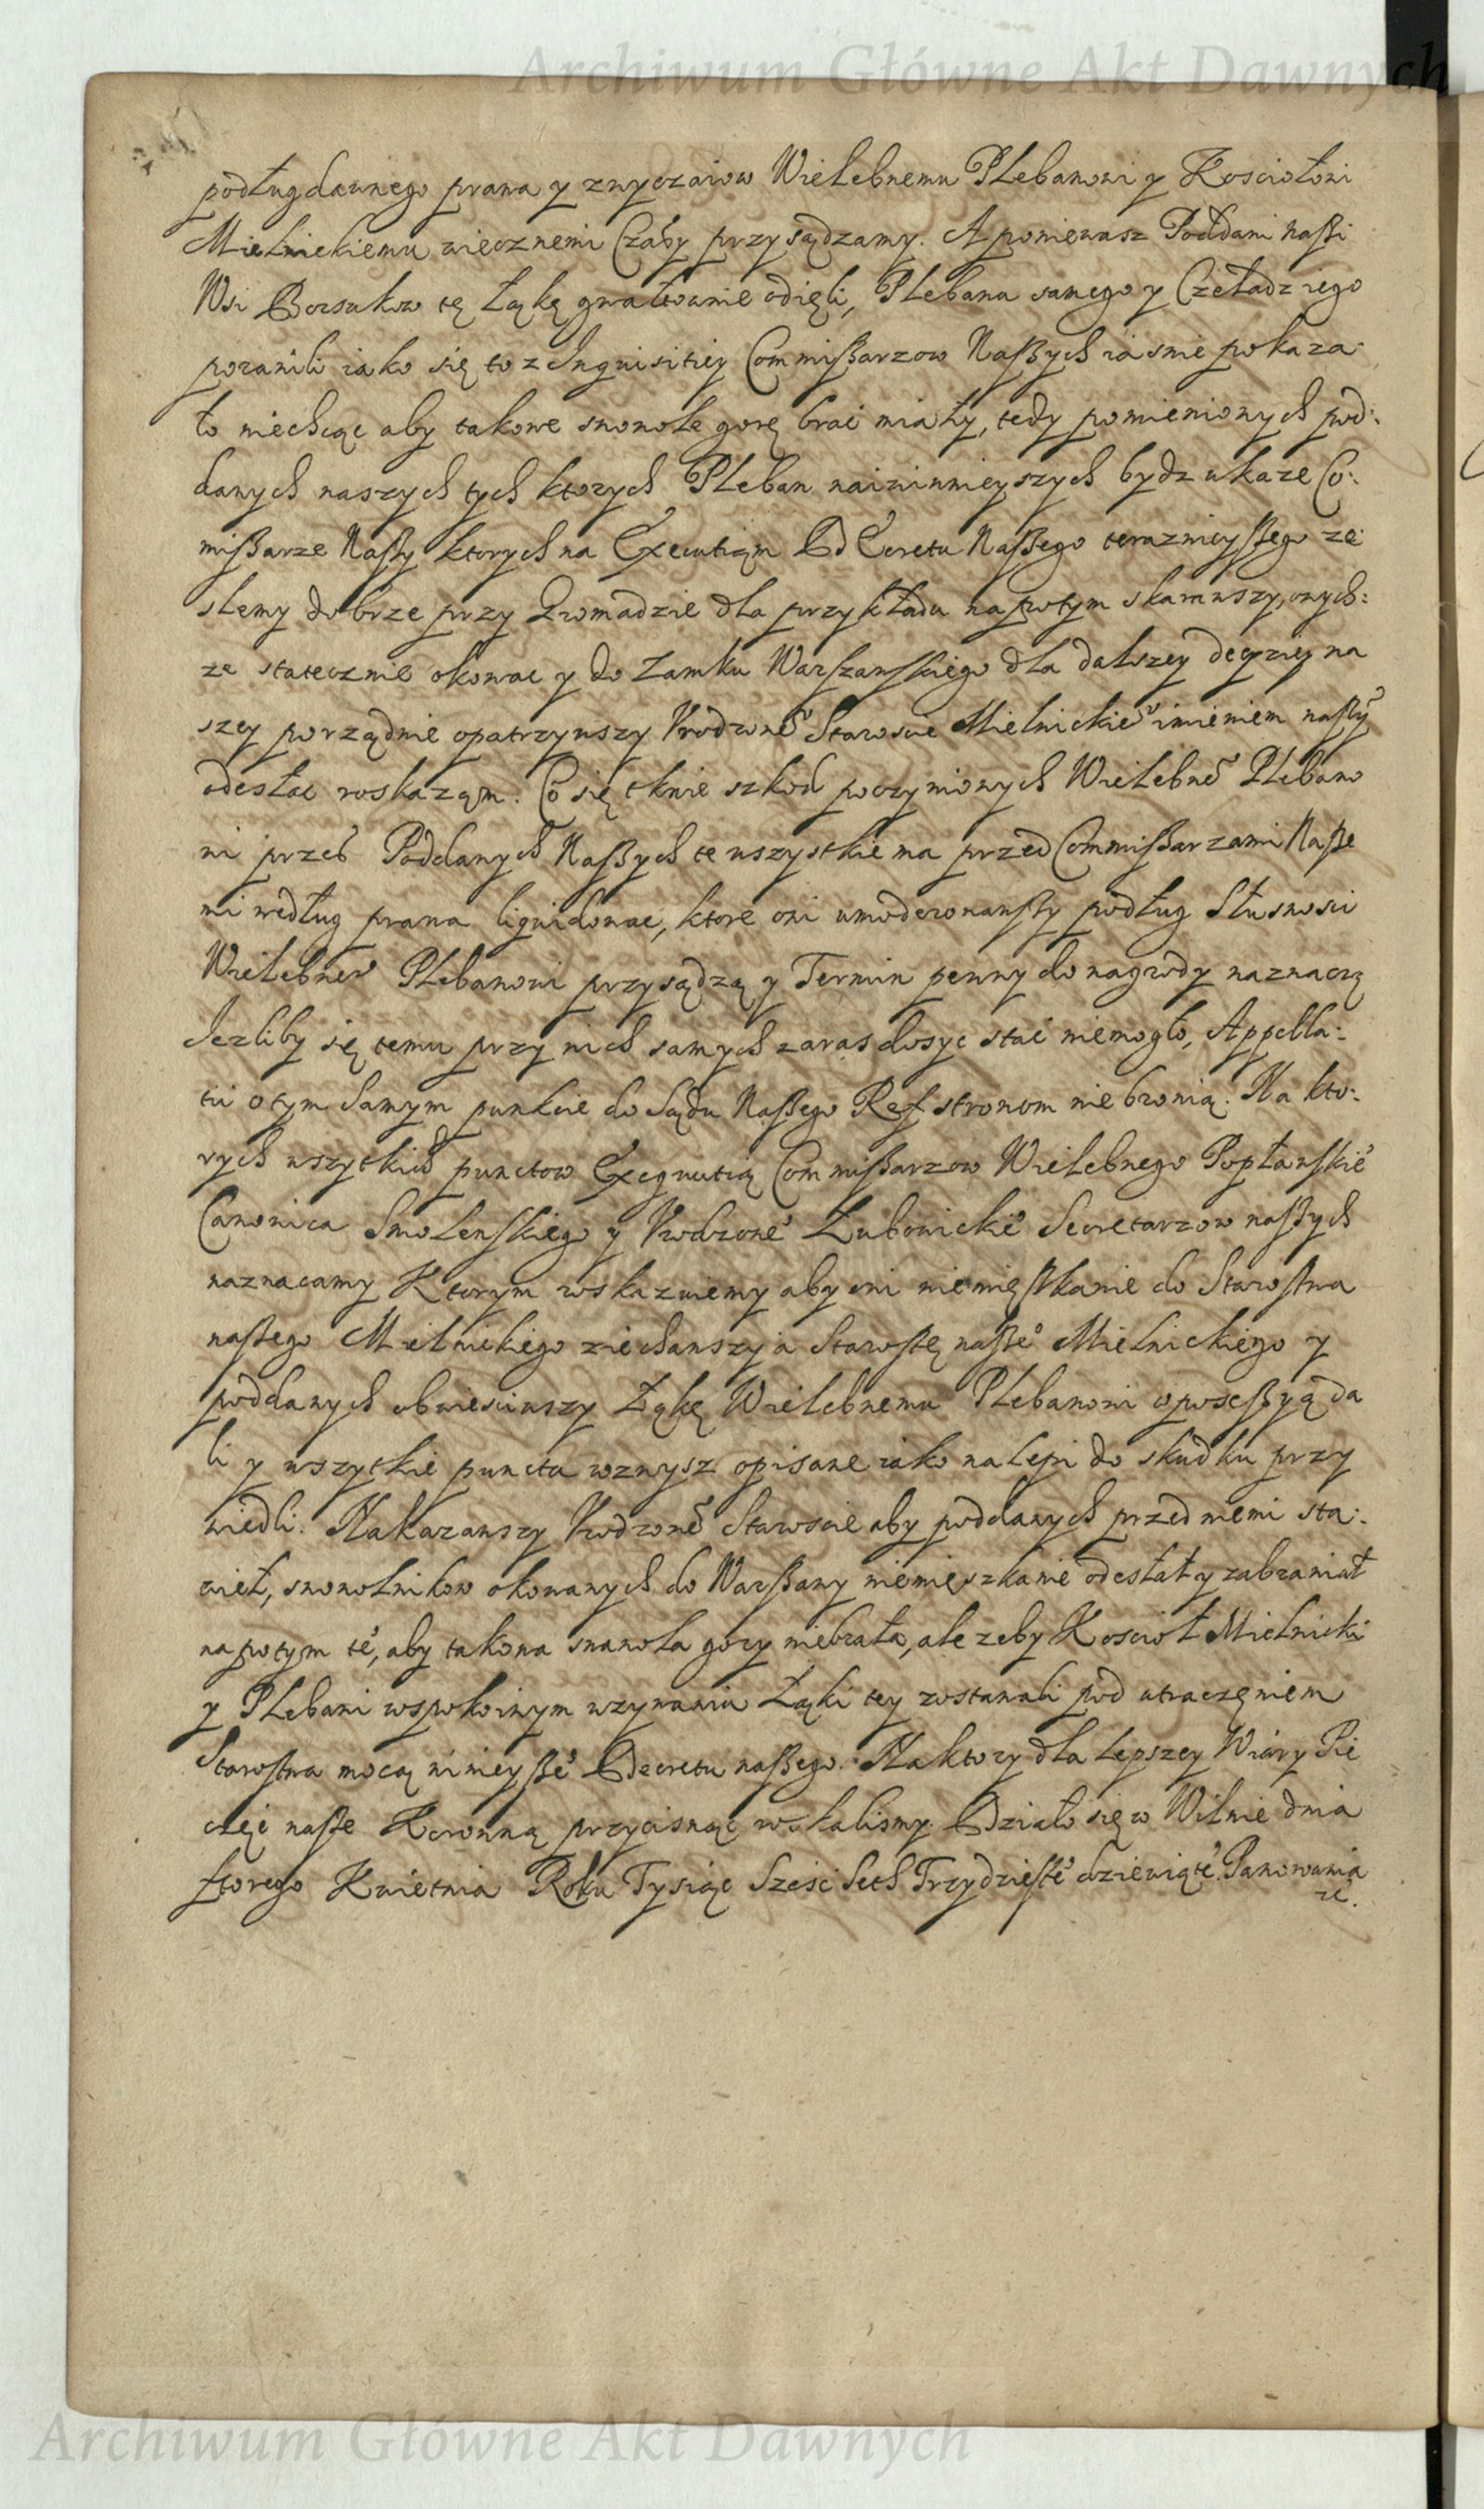 Archiwum Główne Akt Dawnych
podług dawnego prawa y zwyczaiow Wielebnemu Plebanowi y Kosciołowi
Mielnickiemu wiecznemi Czasy przysądzamy. A poniewasz Poddani naszi
Wsi Borsukow tę Łąkę gwałtownie odięli, Plebana samego y Czeladz iego
poranili iako się to z Inquisitiey Commissarzow Naszych iasnie pokaza:
ło niechcąc aby takowe swowole gorę brać miały, tedy pomienionych pod:
danych naszych tych ktorych Pleban naiwinnieyszych bydz ukaze Co:
missarze Naszy ktorych na Executiąm Decretu Naszego teraznieyszego ze:
slemy dobrze przy Gromadzie dla przykładu napotym skarawszy, onych:
ze statecznie okowac y do Zamku Warszawskiego dla dalszey decyziey na
szey porządnie opatrzywszy Vrodzoneº Staroscie Mielnickieº imieniem naszyº
odesłac roskaząm. Co się tknie szkod poczynionych Wielebneº Plebano
wi przes Poddanych Naszych te wszystkie ma przed Commissarzami Nasze
mi według prawa liquidowac, ktore oni umoderowawszy podług Słusnosci
Wielebneº Plebanowi przysądzą y Termin pewny do nagrody naznaczą
Jezliby się temu przy nich samych zaras dosyc stać niemogło, Appella:
tii o tym samym punkcie do Sądu Naszego Ref stronom nie bronią. Na kto:
rych wszytkich punctow Exequutią Commissarzow Wielebnego Popławskieº
Canonica Smolenskiego y Vrodzoneº Łubowickieº Secretarzow naszych
naznacamy Ktorym wskazuiemy aby oni niemięszkanie do Starostwa
naszego Mielnickiego ziechawszy a Starostę naszeº Mielnickiego y
poddanych obwiesciwszy Łąkę Wielebnemu Plebanowi w posessyą da
li y wszytkie puncta wzwysz opisane iako nalepi do skudku przy
wiedli. Nakazawszy Vrodzoneº Staroscie aby poddanych przed niemi sta:
wieł, swowolnikow okowanych do Warszawy niemięszkanie odesłał y zabraniał
napotym teº, aby takowa swawola gory niebrała, ale zeby Kosciół Mielnicki
y Plebani w spokoinym uzywaniu Łąki tey zostawali pod utraczęniem
Starostwa mocą ninieyszeº Decretu naszego. Na ktory dla lepszey Wiary Pie
częć nasze Koronną przycisnąc wskalismy. Działo się w Wilnie dnia
Ktorego Kwietnia Roku Tysiąc Sześć Seth Trzydziesteº dziewiąteº Panowania
etc.
Archiwum Główne Akt Dawnych